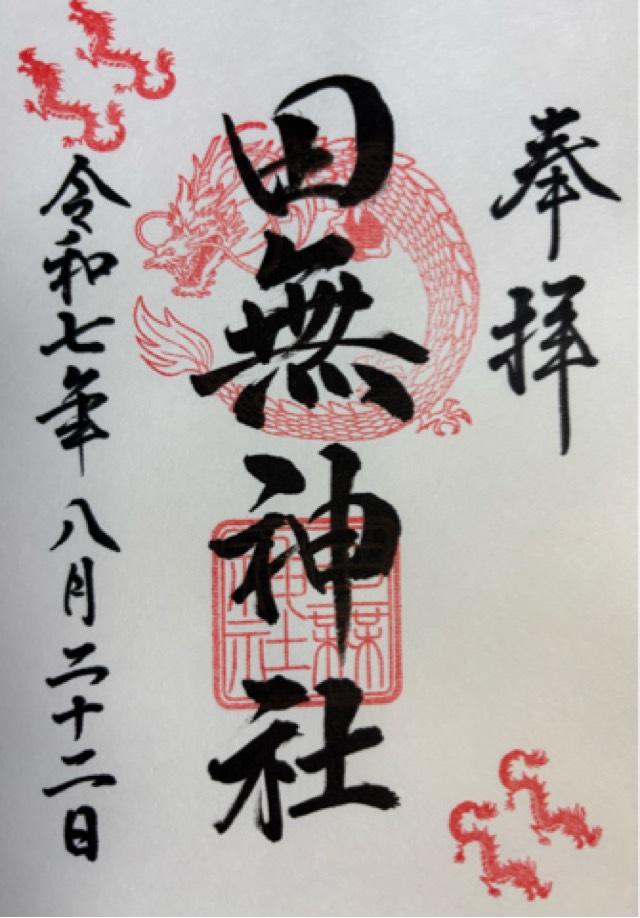 奉拝
田無神社
令和七年八月二十二日
田無神社